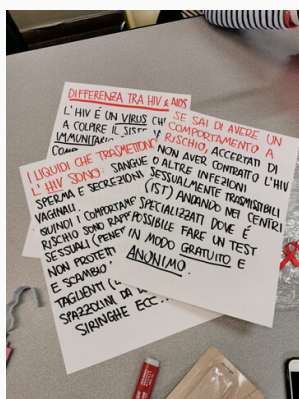 DIFFERENZA TRA HIV & AIDS
L'HIV É UN VIRUS CH
A COLPIRE IL SISTE
IMMUNITARIO
I LIQUIDI CHE TRASMETTONO
L'HIV SONO: SANGUE
SPERMA E SECREZIONI
VAGINALI.
QUINDI I COMPORTAME
RISCHIO SONO RAPP
SESSUALI (PENET
NON PROTETTI
E SCAMBIO
TAGLIENTI
SPAZZOLINI DA
SIRINGHE ECC...
SE SAI DI AVERE UN
COMPORTAMENTO A
RISCHIO, ACCERTATI DI
NON AVER CONTRATTO L'HIV
O ALTRE INFEZIONI
SESSUALMENTE TRASMISSIBILI
(IST) ANDANDO NEI CENTRI
SPECIALIZZATI DOVE É
POSSIBILE FARE UN TEST
IN MODO GRATUITO E
ANONIMO.